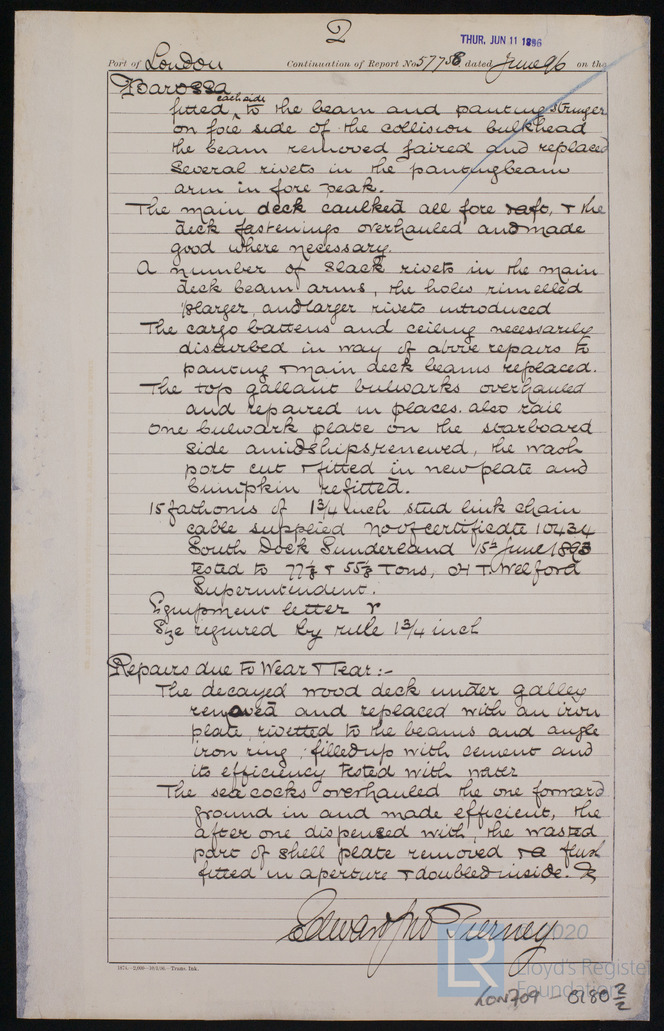 2
THUR. JUN 11 1896
Port of London Continuation of Report No 57758 dated June 96 on the
Barossa
fitted each side to the beam and panting stringer
on fore side of the collision bulkhead
the beam removed faired and replaced
Several rivets in the panting beam
arm in fore peak.
The main deck caulked all fore & aft, & the
deck fastenings overhauled and made
good where necessary.
A number of slack rivets in the main
deck beam arms, the holes rimelled
1/8 larger, and larger rivets introduced
The cargo battens and ceiling necessarily
disturbed in way of above repairs to
panting & main deck beams replaced.
The top gallant bulwarks overhauled
and repaired in places. also rail
One bulwark plate on the starboard
side amidships renewed, the wash
port cut & fitted in new plate and
bumpkin refitted.
15 fathoms of 1 3/4 inch stud link chain
cable supplied No of certificate 10434
South Dock Sunderland 15th June 1893
tested to 77 1/8 & 55 1/8 Tons, T. Welford
Superintendent.
Equipment letter r
Size required by rule 1 3/4 inch
Repairs due to Wear & Tear:-
The decayed wood deck under galley
removed and replaced with an iron
plate rivetted to the beams and angle
iron ring; filled up with cement and
its efficiency tested with water
The sea cocks overhauled the one forward
ground in and made efficient, the
after one dispensed with, the wasted
part of shell plate removed & a flush
fitted in aperture & doubled inside.
Edward Jno Tierney
1874.-2,000-18/3/96.-Trans. Ink.
2020
LR
Lloyd's Register
Foundation
LON709-0180 2/2